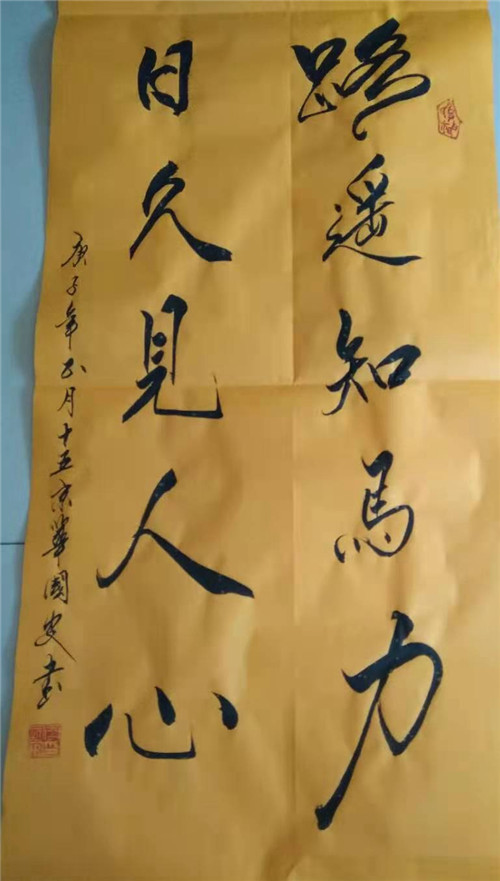 路遥知馬力
日久見人心
庚子年正月十五京華国史書